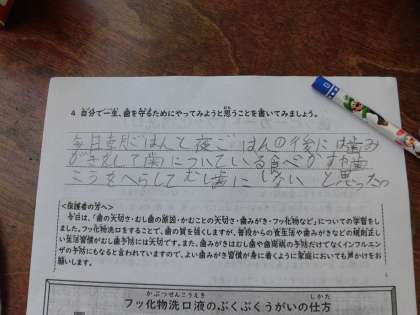 4. 自分で一生、歯を守るためにやってみようと思うことを書いてみましょう。
毎日朝ごはんと夜ごはんの後には歯み
がきをして歯についている食べかすや歯
こうをへらしてむし歯にしない と思った。
＜保護者の方へ＞
今日は、「歯の大切さ・むし歯の原因・かむことの大切さ・歯みがき・フッ化物など」についての学習をし
ました。フッ化物洗口をすることで、歯の質を強くしますが、普段からの食生活や歯みがきなどの規則正し
い生活習慣がむし歯予防には大切です。また、歯みがきはむし歯や歯周病の予防だけでなくインフルエン
ザの予防にもなると言われていますので、よい歯みがき習慣が身に着くように家庭においても声かけをお
願いします。
フッ化物洗口液のぶくぶくうがいの仕方